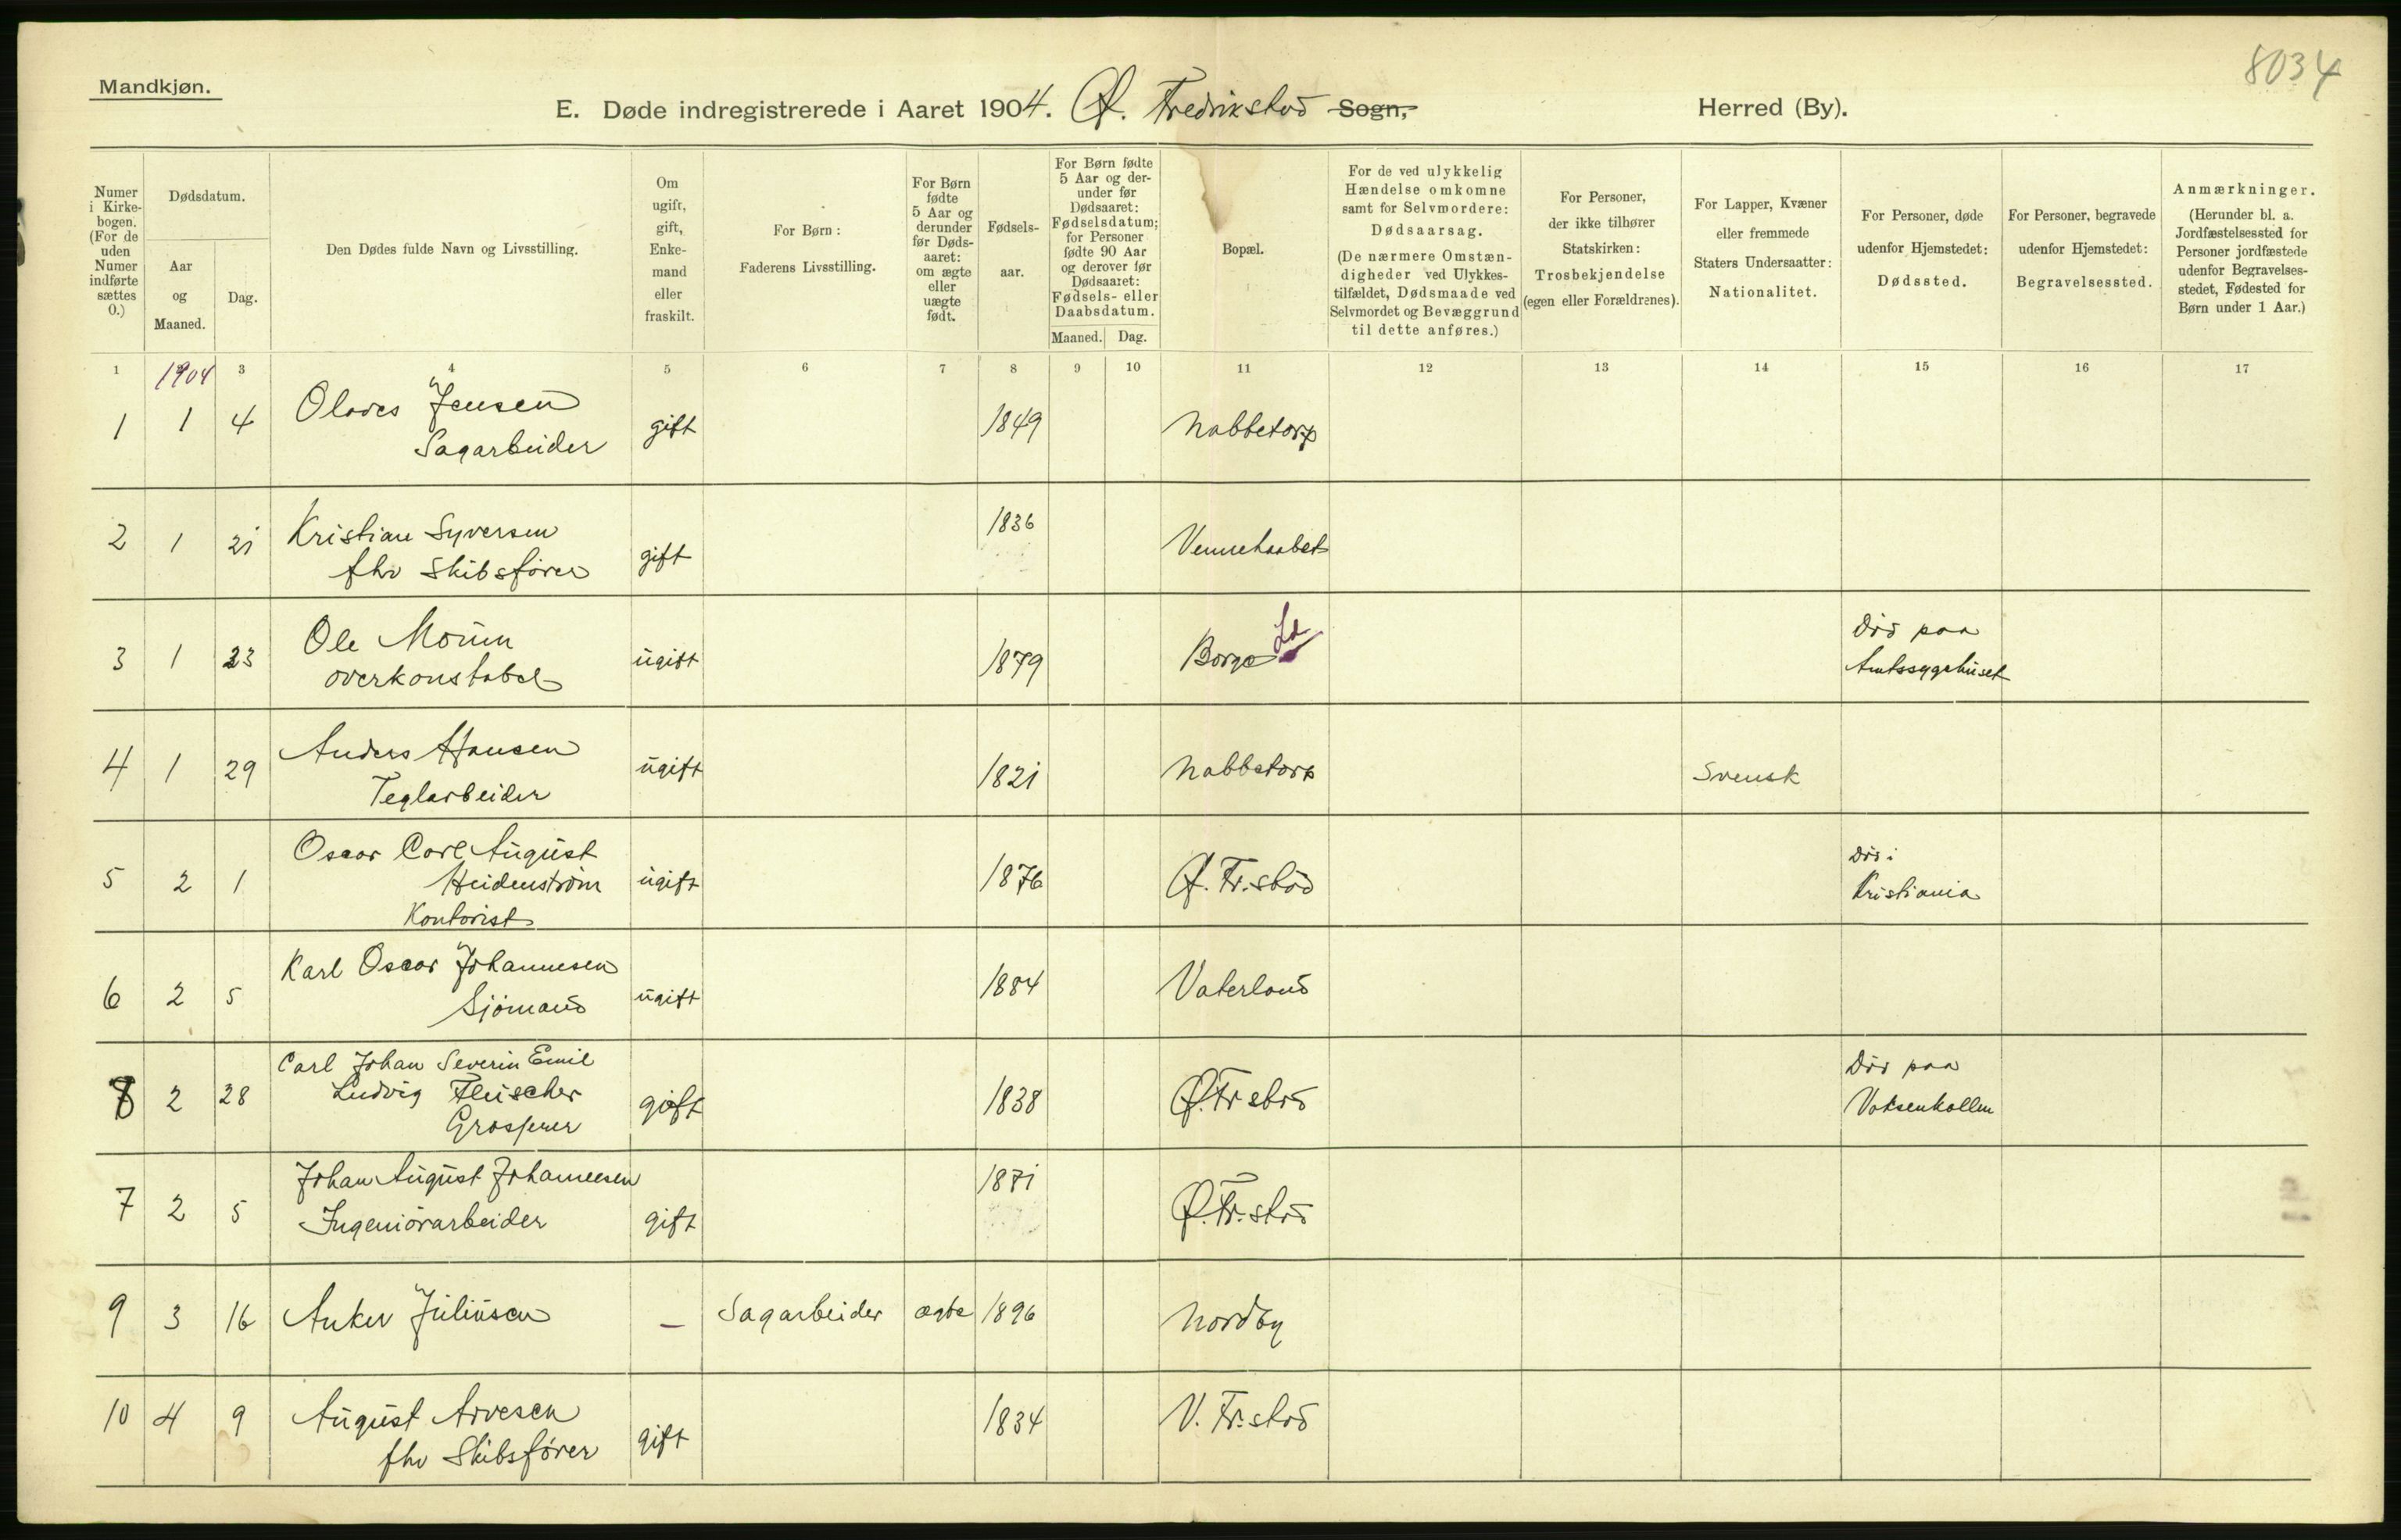 8034
Mandkjøn.
E. Døde indregistrerede i Aaret 1904. Ø. Fredrikstad Sogn, Herred (By).
Numer i Kirke-bogen. (For de uden Numer indførte sættes 0.)
Dødsdatum.
Aar og Maaned.
Dag.
Den Dødes fulde Navn og Livsstilling.
Om ugift, gift, Enke-mand eller fraskilt.
For Børn:
Faderens Livsstilling.
For Børn fødte 5 Aar og derunder før Døds-aaret: om ægte eller uægte født.
Fødsels-aar.
For Børn fødte 5 Aar og der-under før Dødsaaret: Fødselsdatum; for Personer fødte 90 Aar og derover før Dødsaaret: Fødsels- eller Daabsdatum.
Maaned. Dag.
Bopæl.
For de ved ulykkelig Hændelse omkomne samt for Selvmordere: Dødsaarsag.
(De nærmere Omstæn-digheder ved Ulykkes-tilfældet, Dødsmaade ved Selvmordet og Bevæggrund til dette anføres.)
For Personer, der ikke tilhører Statskirken: Trosbekjendelse (egen eller Forældrenes).
For Lapper, Kvæner eller fremmede Staters Undersaatter: Nationalitet.
For Personer, døde udenfor Hjemstedet: Dødssted.
For Personer, begravede udenfor Hjemstedet: Begravelsessted.
Anmærkninger.
(Herunder bl. a. Jordfæstelsessted for Personer jordfæstede udenfor Begravelses-stedet, Fødested for Børn under 1 Aar.)
1 1904 3 4 5 6 7 8 9 10 11 12 13 14 15 16 17
1 1 4 Olaves Jensen gift 1849 Nabbetorp
Sagarbeider
2 1 21 Kristian Syversen gift 1836 Vennehaabet
fhv Skibsfører
3 1 23 Ole Moum ugift 1879 Borge Ld Død paa
overkonstabel Amtssygehuset
4 1 29 Anders Hansen ugift 1821 Nabbetorp Svensk
Teglarbeider
5 2 1 Oscar Carl August ugift 1876 Ø. Fr.stad Død i
Heidenstrøm Kristiania
Kontorist
6 2 5 Karl Oscar Johannesen ugift 1884 Vaterland
Sjømand
8 2 28 Carl Johan Severin Emil gift 1838 Ø. Fr stad Død paa
Ludvig Fleischer Voksenkollen
Grosserer
7 2 5 Johan August Johannesen gift 1871 Ø. Fr. stad
Ingeniørarbeider
9 3 16 Anker Juliusen — Sagarbeider ægte 1896 Nordby
10 4 9 August Arvesen gift 1834 V. Fr. stad
fhv Skibsfører